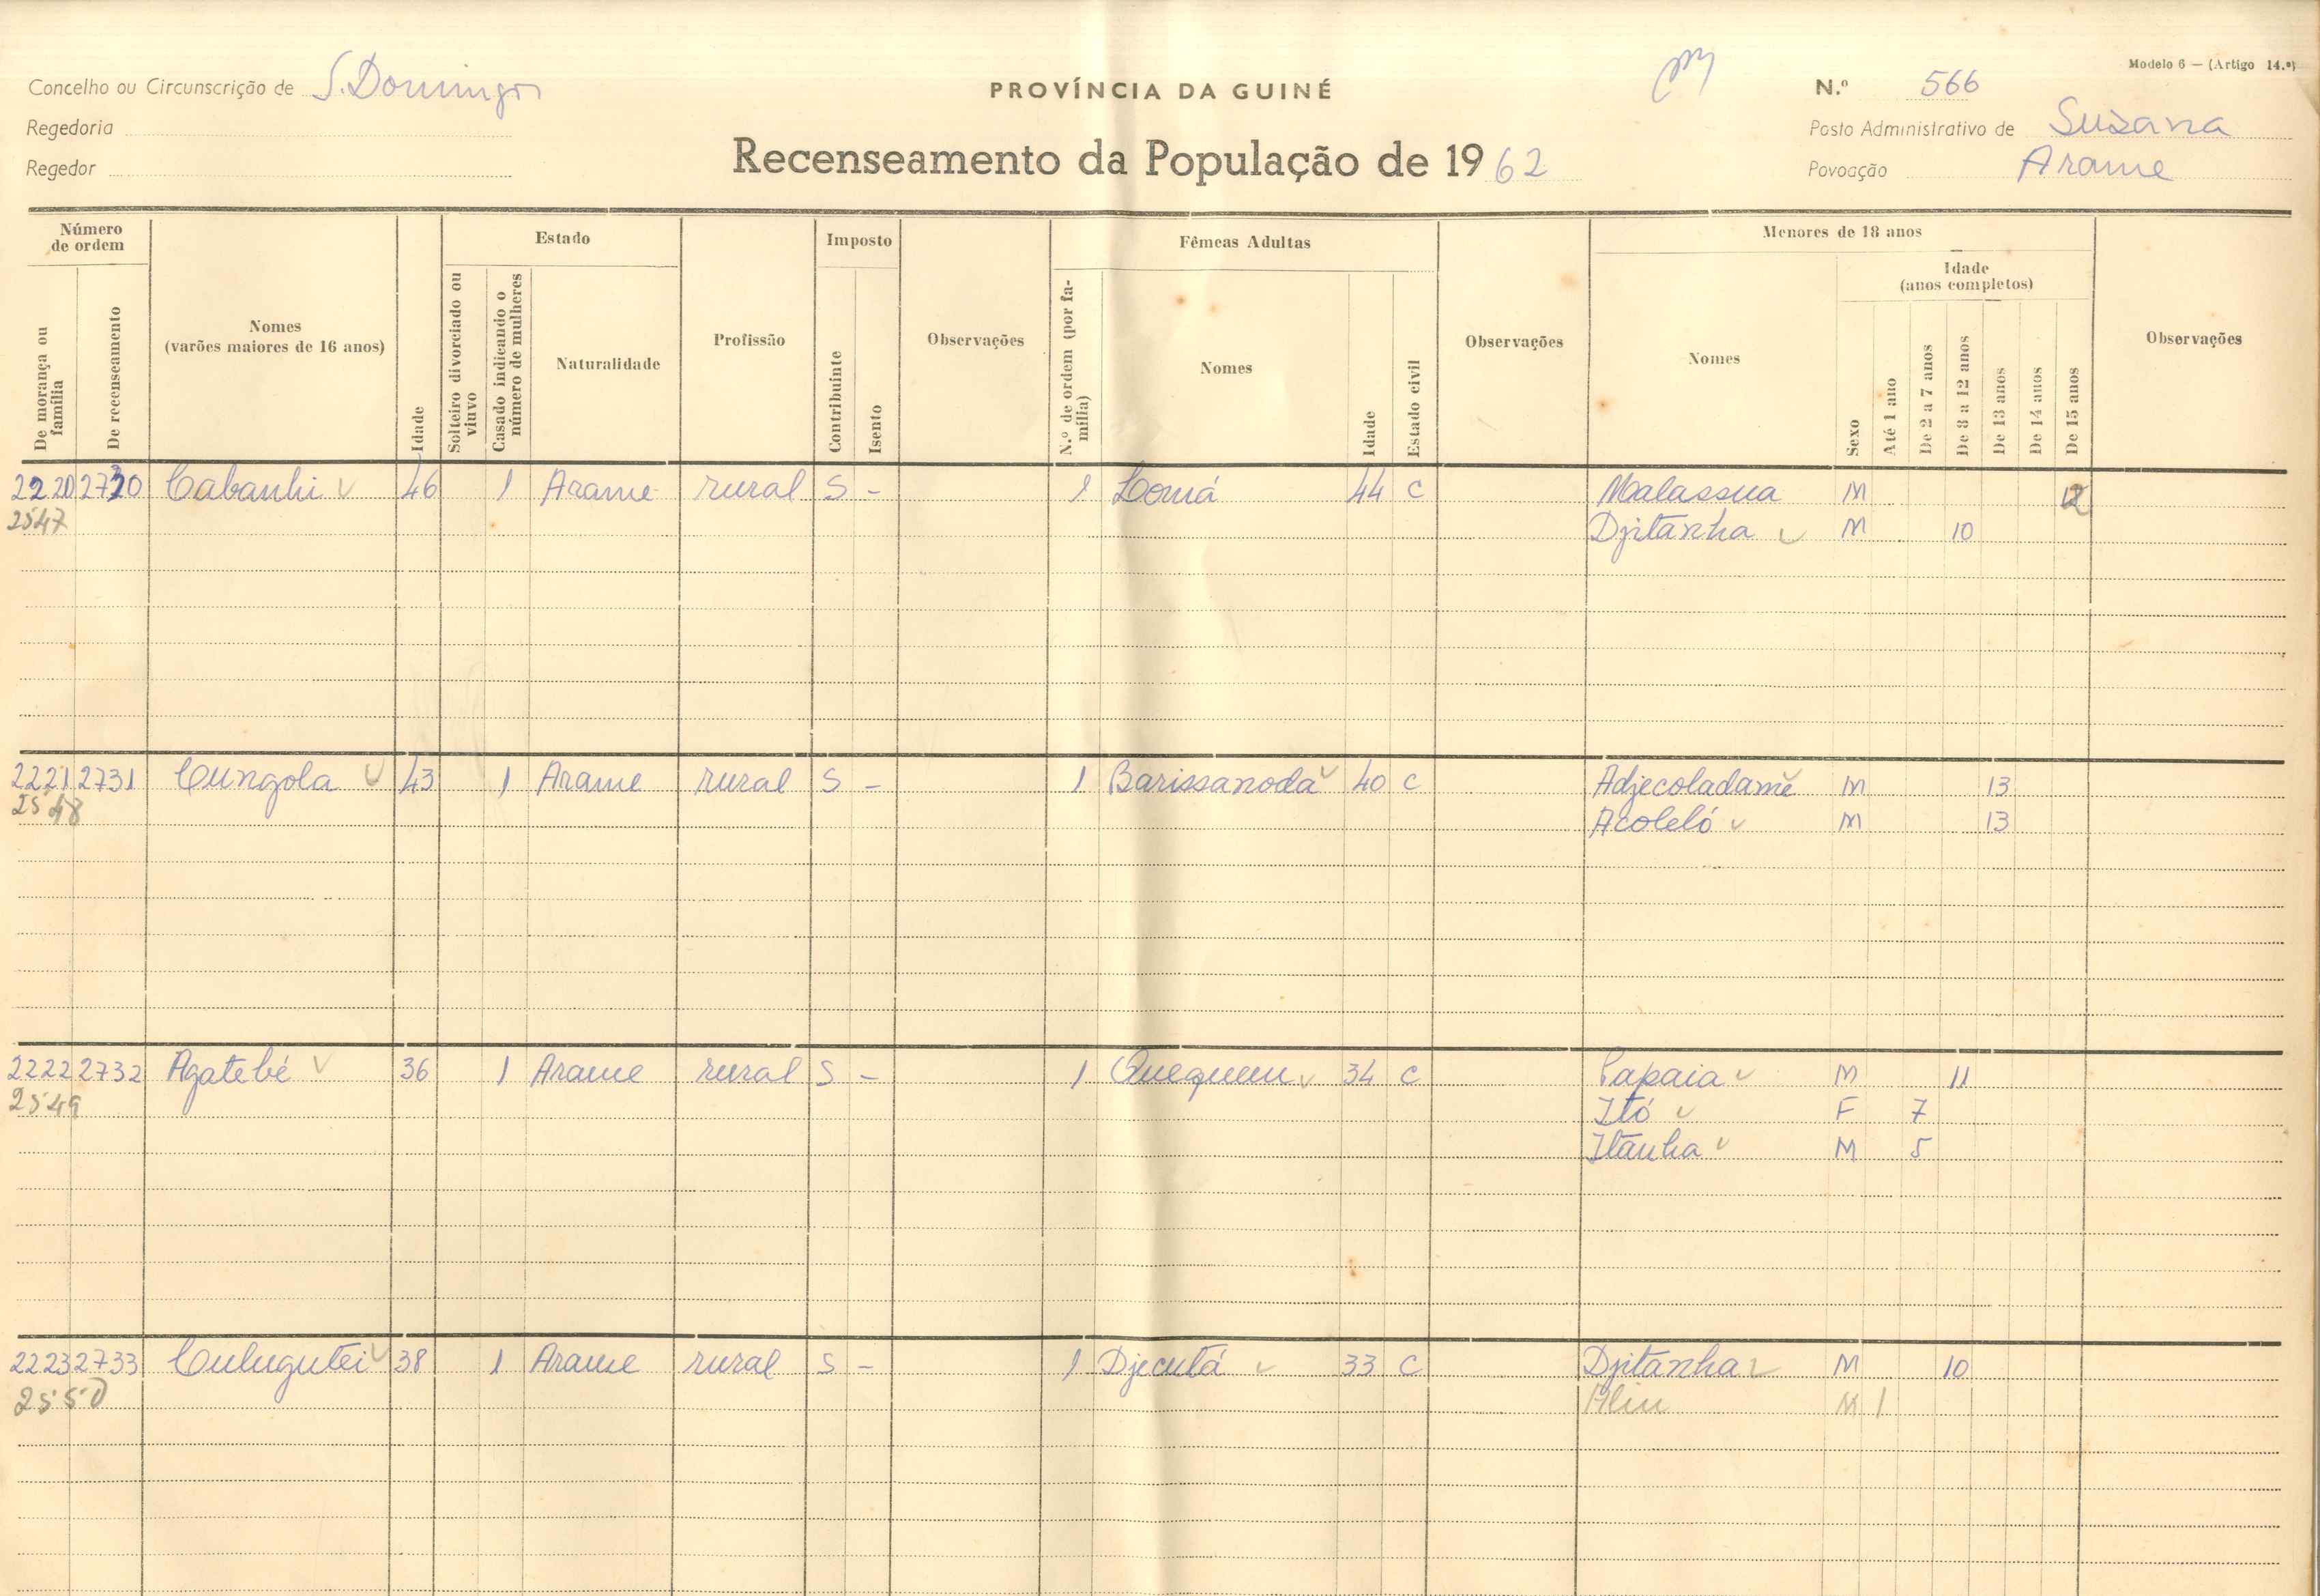 Modelo 6 — (Artigo 14.º)
Concelho ou Circunscrição de S. Domingos PROVÍNCIA DA GUINÉ N.º 566
Regedoria Posto Administrativo de Suzana
Regedor Recenseamento da População de 1962 Povoação Arame
Número de ordem
De morança ou família
De recenseamento
Nomes (varões maiores de 16 anos)
Idade
Estado
Solteiro divorciado ou viuvo
Casado indicando o número de mulheres
Naturalidade
Profissão
Imposto
Contribuinte
Isento
Observações
Fêmeas Adultas
N.º de ordem (por família)
Nomes
Idade
Estado civil
Observações
Menores de 18 anos
Nomes
Sexo
Idade (anos completos)
Até 1 ano
De 2 a 7 anos
De 8 a 12 anos
De 13 anos
De 14 anos
De 15 anos
Observações
2220 2730 Cabanhi 46 1 Arame rural S - 1 Lomá 44 C Malassua M
2547 Djitanha M 10
2221 2731 Cungola 43 1 Arame rural S - 1 Barissanodá 40 C Adjecoladame M 13
2548 Acoleló M 13
2222 2732 Agatebé 36 1 Arame rural S - 1 Quequem 34 C Papaia M 11
2549 Itó F 7
Itanha M 5
2223 2733 Culugutei 38 1 Arame rural S - 1 Djecutá 33 C Djitanha M 10
2550 Aliu M 1